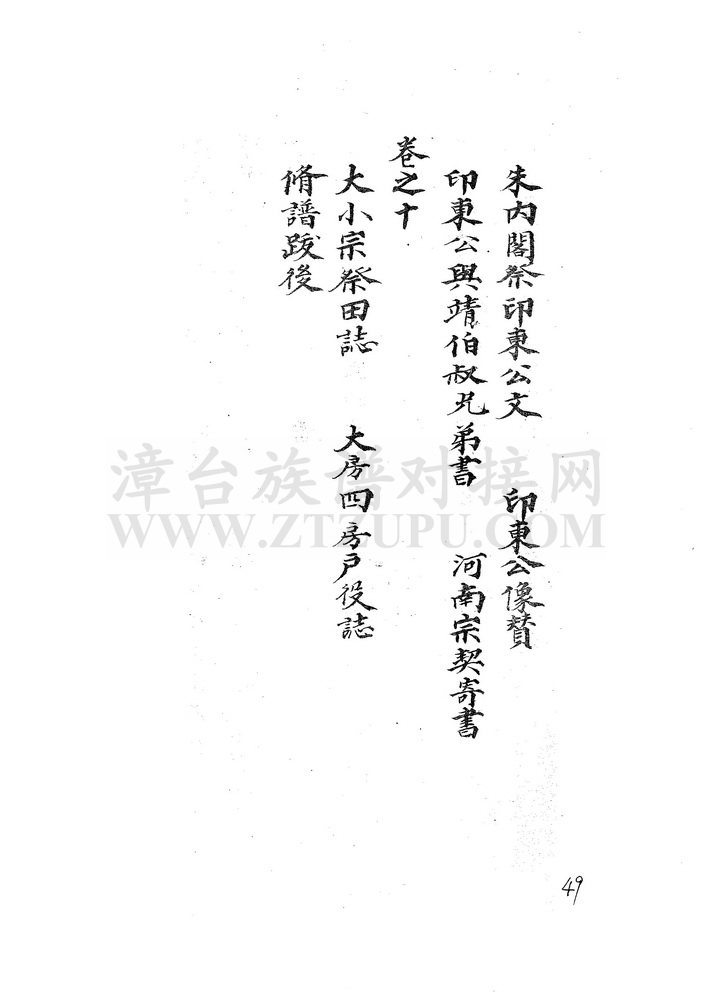 朱内閣祭印東公文　印東公像賛
印東公與靖伯叔兄弟書　河南宗契寄書
卷之十
大小宗祭田誌　大房四房户役誌
脩譜跋後
漳台族谱对接网
WWW.ZTZUPU.COM
49